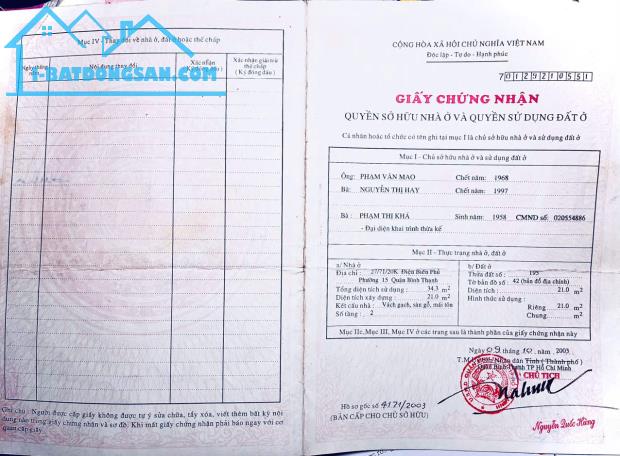 Mục IV - Thay đổi về nhà ở, đất ở hoặc thế chấp
Ngày tháng năm
Nội dung thay đổi
Xác nhận
(Ký đóng dấu)
Xác nhận giải trừ thế chấp
(Ký đóng dấu)
I-BATDONGSAN.COM
Ghi chú: Người được cấp giấy không được tự ý sửa chữa, tẩy xóa, viết thêm bất kỳ nội
dung nào trong giấy chứng nhận và sơ đồ. Khi mất giấy chứng nhận phải báo ngay với cơ
quan cấp giấy.
CỘNG HÒA XÃ HỘI CHỦ NGHĨA VIỆT NAM
Độc lập - Tự do - Hạnh phúc
70129210551
GIẤY CHỨNG NHẬN
QUYỀN SỞ HỮU NHÀ Ở VÀ QUYỀN SỬ DỤNG ĐẤT Ở
Cá nhân hoặc tổ chức có tên ghi tại mục I là chủ sở hữu nhà ở và sử dụng đất ở
Mục I - Chủ sở hữu nhà ở và sử dụng đất ở
Ông: PHẠM VĂN MAO Chết năm: 1968
Bà: NGUYỄN THỊ HAY Chết năm: 1997
Bà : PHẠM THỊ KHÁ Sinh năm: 1958 CMND số: 020554886
- Đại diện khai trình thừa kế
Mục II - Thực trạng nhà ở, đất ở
a/ Nhà ở
Địa chỉ : 27/71/20K Điện Biên Phủ
Phường 15 Quận Bình Thạnh
Tổng diện tích sử dụng : 34.3 m2
Diện tích xây dựng : 21.0 m2
Kết cấu nhà : Vách gạch, sàn gỗ, mái tôn
Số tầng : 2
b/ Đất ở
Thửa đất số: 195
Tờ bản đồ số: 42 (bản đồ địa chính)
Diện tích : 21.0 m2
Hình thức sử dụng:
Riêng 21.0 m2
Chung m2
Mục IIc, Mục III, Mục IV ở các trang sau là thành phần của giấy chứng nhận này
Ngày 09 tháng 10, năm 2003
T.M Nhân dân Tỉnh (Thành phố)
Quận Bình Thạnh TP Hồ Chí Minh
CHỦ TỊCH
Hồ sơ gốc số 4171/2003
(BẢN CẤP CHO CHỦ SỞ HỮU)
Nguyễn Quốc Hùng